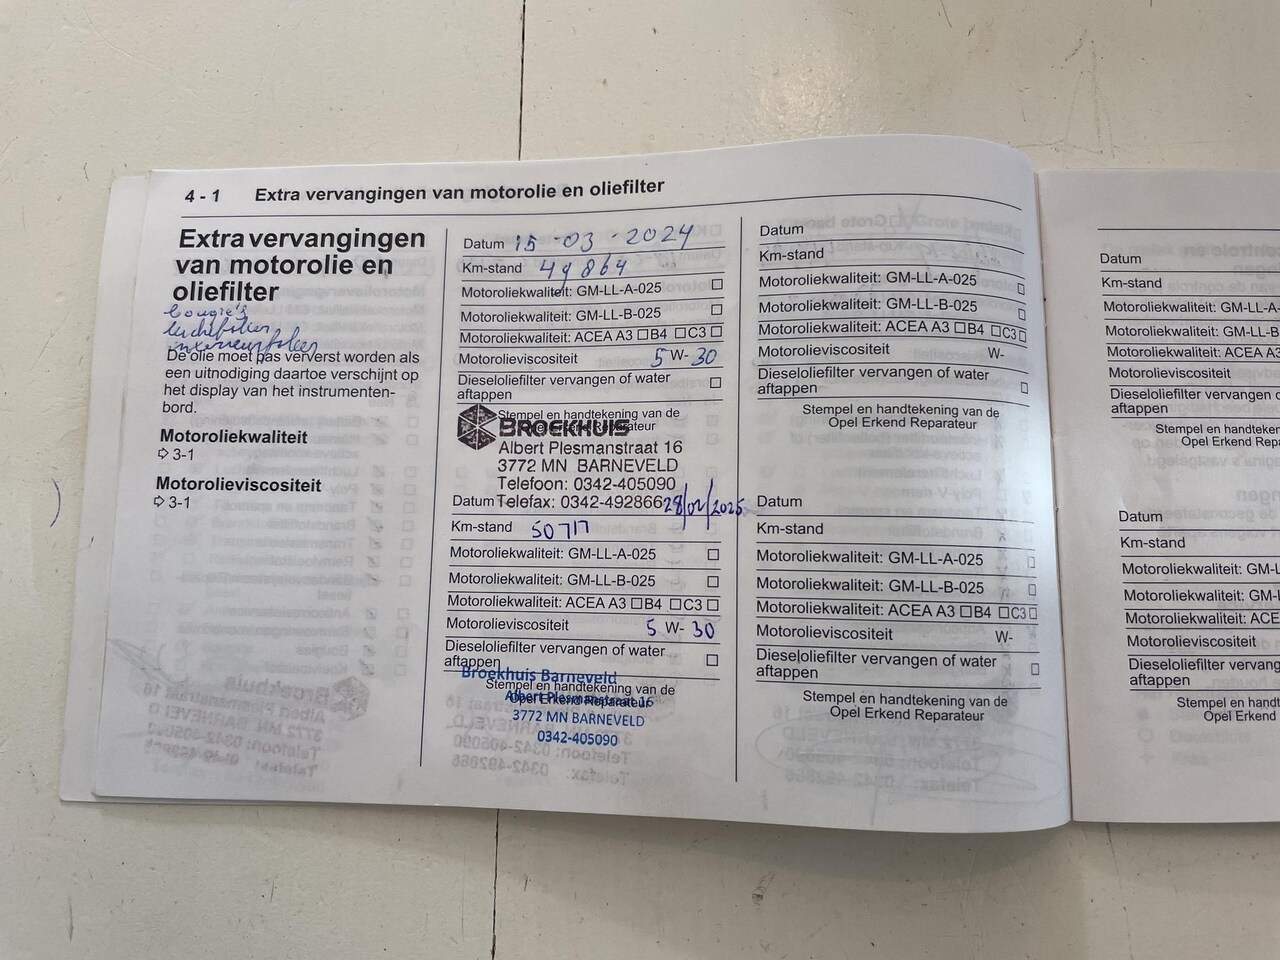 4 - 1 Extra vervangingen van motorolie en oliefilter
Extra vervangingen
van motorolie en
oliefilter
bougie's
luchtfilter
interieurfilter
De olie moet pas ververst worden als
een uitnodiging daartoe verschijnt op
het display van het instrumenten-
bord.
Motoroliekwaliteit
⇨ 3-1
Motorolieviscositeit
⇨ 3-1
Datum 15-03-2024
Km-stand 49864
Motoroliekwaliteit: GM-LL-A-025 ☐
Motoroliekwaliteit: GM-LL-B-025 ☐
Motoroliekwaliteit: ACEA A3 ☐B4 ☐C3 ☐
Motorolieviscositeit 5 W- 30
Dieseloliefilter vervangen of water
aftappen ☐
Stempel en handtekening van de
Opel Erkend Reparateur
BROEKHUIS
Albert Plesmanstraat 16
3772 MN BARNEVELD
Telefoon: 0342-405090
Telefax: 0342-492866
Datum 28/02/2025
Km-stand 50717
Motoroliekwaliteit: GM-LL-A-025 ☐
Motoroliekwaliteit: GM-LL-B-025 ☐
Motoroliekwaliteit: ACEA A3 ☐B4 ☐C3 ☐
Motorolieviscositeit 5 W- 30
Dieseloliefilter vervangen of water
aftappen ☐
Broekhuis Barneveld
Stempel en handtekening van de
Albert Plesmanstraat 16
Opel Erkend Reparateur
3772 MN BARNEVELD
0342-405090
Datum
Km-stand
Motoroliekwaliteit: GM-LL-A-025 ☐
Motoroliekwaliteit: GM-LL-B-025 ☐
Motoroliekwaliteit: ACEA A3 ☐B4 ☐C3 ☐
Motorolieviscositeit W-
Dieseloliefilter vervangen of water
aftappen ☐
Stempel en handtekening van de
Opel Erkend Reparateur
Datum
Km-stand
Motoroliekwaliteit: GM-LL-A-025 ☐
Motoroliekwaliteit: GM-LL-B-025 ☐
Motoroliekwaliteit: ACEA A3 ☐B4 ☐C3 ☐
Motorolieviscositeit W-
Dieseloliefilter vervangen of water
aftappen ☐
Stempel en handtekening van de
Opel Erkend Reparateur
Datum
Km-stand
Motoroliekwaliteit: GM-LL-A-
Motoroliekwaliteit: GM-LL-B
Motoroliekwaliteit: ACEA A3
Motorolieviscositeit
Dieseloliefilter vervangen o
aftappen
Stempel en hand
Opel Erkend Rep
Datum
Km-stand
Motoroliekwaliteit: GM-L
Motoroliekwaliteit: GM-
Motoroliekwaliteit: ACE
Motorolieviscositeit
Dieseloliefilter vervang
aftappen
Stempel en hand
Opel Erkend